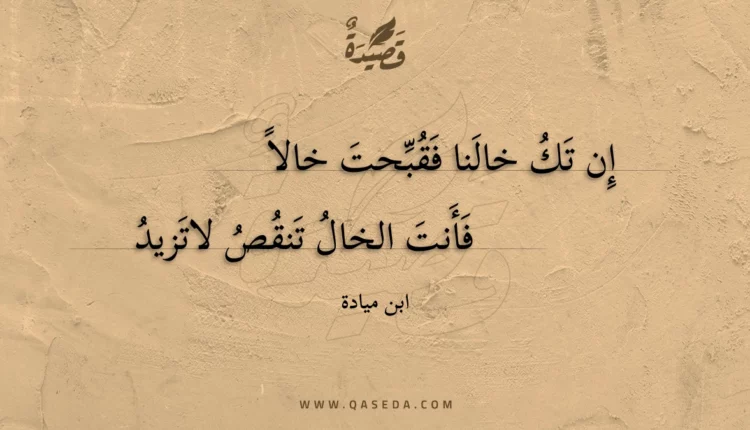 قَصِيْدَةٌ
إِن تَكُ خالَنا فَقُبِّحتَ خالاً
فَأَنتَ الخالُ تَنقُصُ لاتَزيدُ
ابن ميادة
WWW.QASEDA.COM